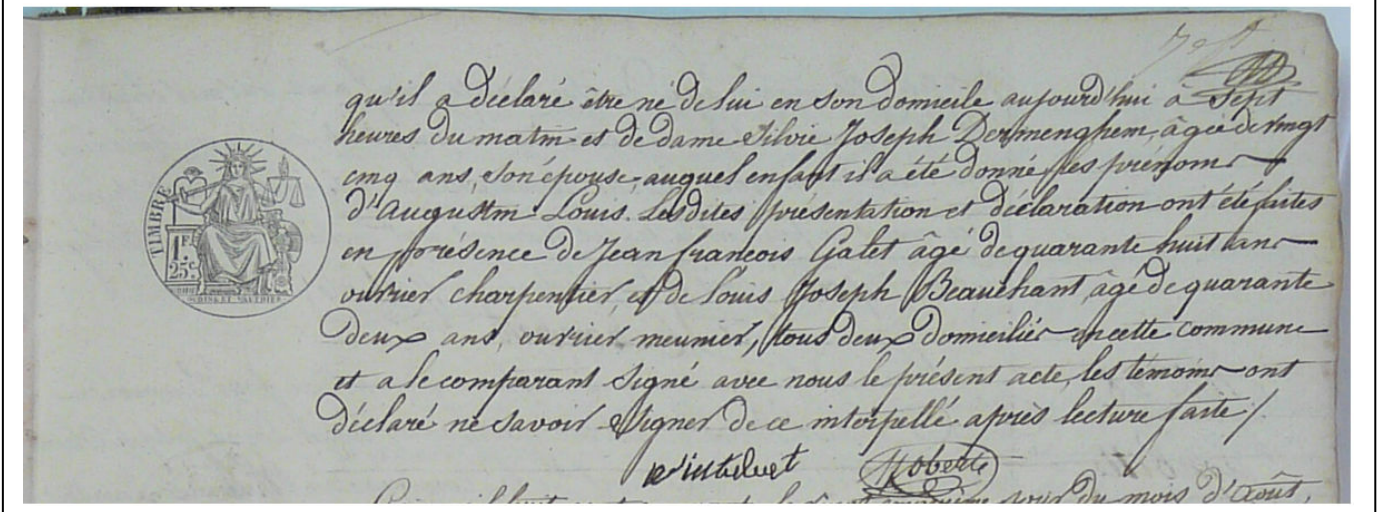 qu'il a déclaré être né de lui en son domicile aujourd'hui à Sept
heures du matin et de dame Silvie Joseph Dermenghem, âgée de vingt
cinq ans, Son épouse, auquel enfant il a été donné les prénoms
d'Augustin Louis. Lesdites présentation et déclaration ont été faites
en présence de Jean françois Galet âgé de quarante huit ans
ouvrier charpentier, et de Louis Joseph Beauchant, âgé de quarante
deux ans, ouvrier meunier, tous deux domiciliés en cette commune
et a le comparant Signé avec nous le présent acte, les témoins ont
déclaré ne Savoir Signer de ce interpellé après lecture faite /
TIMBRE
1F.
25c.
jour du mois d'Août,